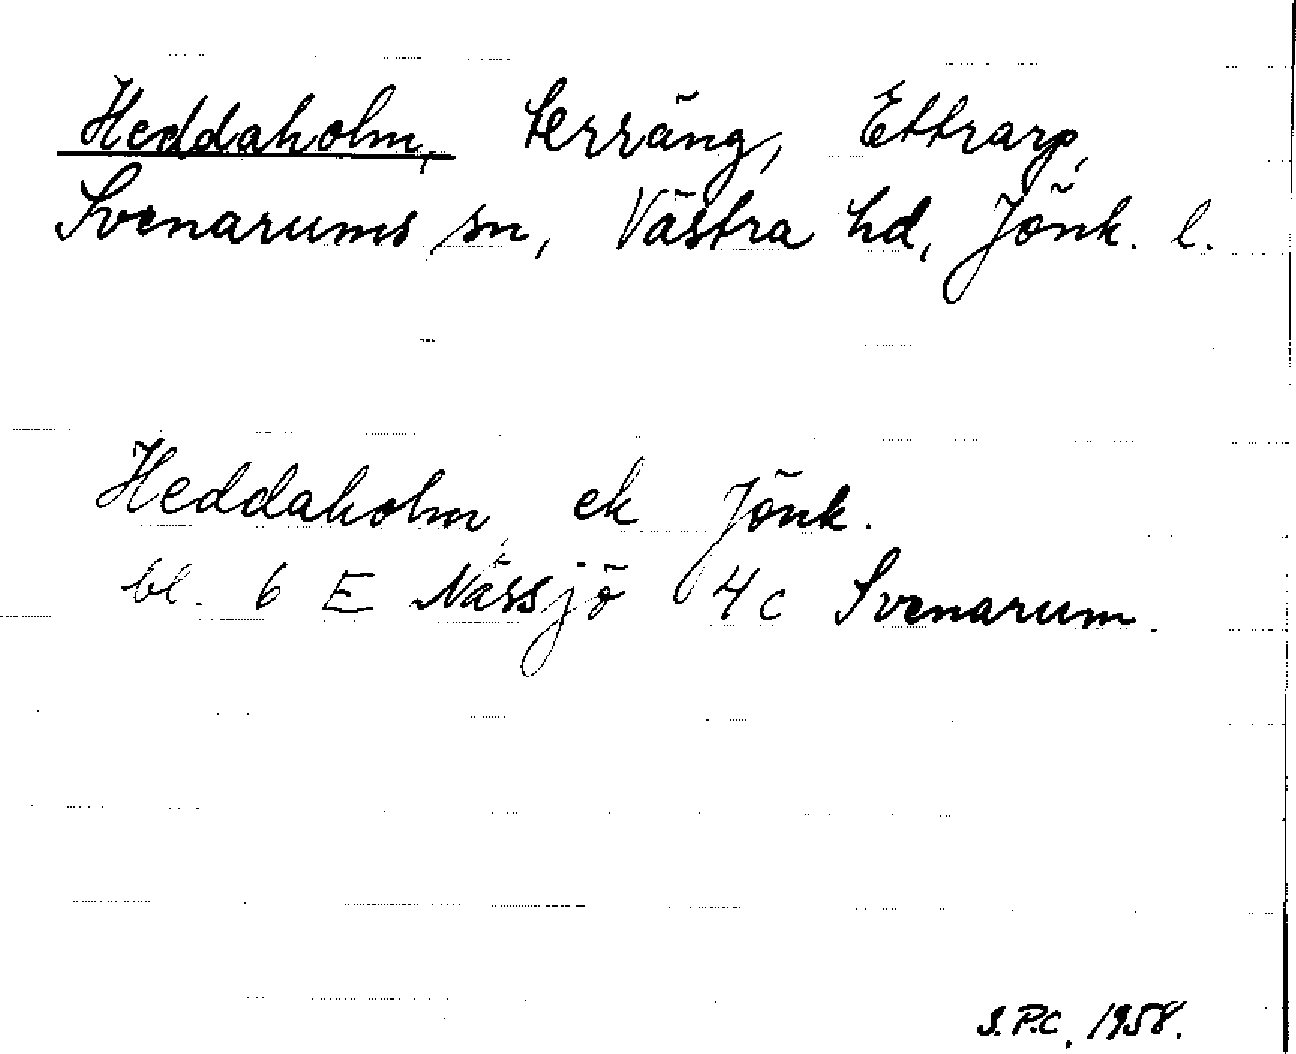 Heddaholm, terräng, Ettrarp,
Svenarums sn, Västra hd, Jönk. l.
Heddaholm, ek Jönk.
bl. 6 E Nässjö 4 c Svenarum.
S.P.C. 1958.